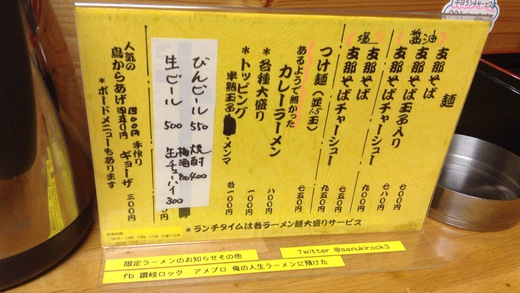 麺
醤油
支那そば 六〇〇
支那そば玉子入り 七〇〇
支那そばチャーシュー 八〇〇
塩
支那そば 七五〇
支那そばチャーシュー 九五〇
つけ麺(並1.5玉) 七五〇
あるようで無かった
カレーラーメン 八〇〇
*各種大盛り 一〇〇
*トッピング
半熟玉子 メンマ 各一〇〇
びんビール 550
生ビール 500
焼酎 400
梅酒
缶チューハイ 300
人気の
鳥からあげ
手作り
ギョーザ 三〇〇円
*ボードメニューもあります
*ランチタイムは各ラーメン麺大盛りサービス
限定ラーメンのお知らせその他
Twitter @sanukirock3
fb 讃岐ロック アメブロ 俺の人生ラーメンに預けた